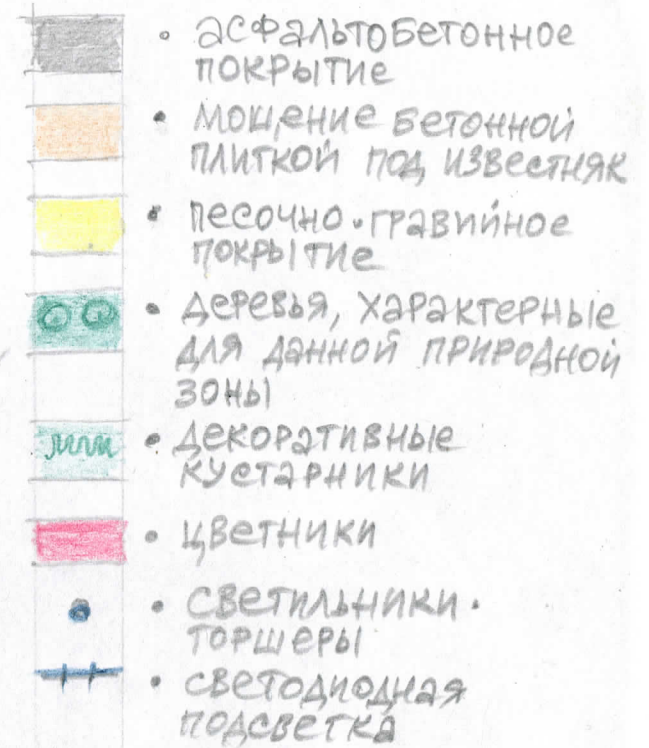 • асфальтобетонное
покрытие
• мощение бетонной
плиткой под известняк
• песочно-гравийное
покрытие
• деревья, характерные
для данной природной
зоны
• декоративные
кустарники
• цветники
• светильники-
торшеры
• светодиодная
подсветка